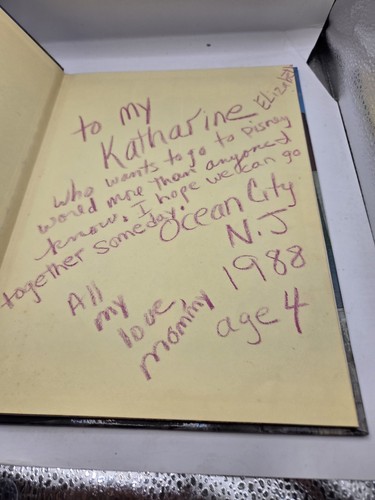 to my
Katharine Elizabeth
who wants to go to Disney
world more than anyone I
know, I hope we can go
together someday!
Ocean City
N.J
1988
age 4
All
my
love,
mommy